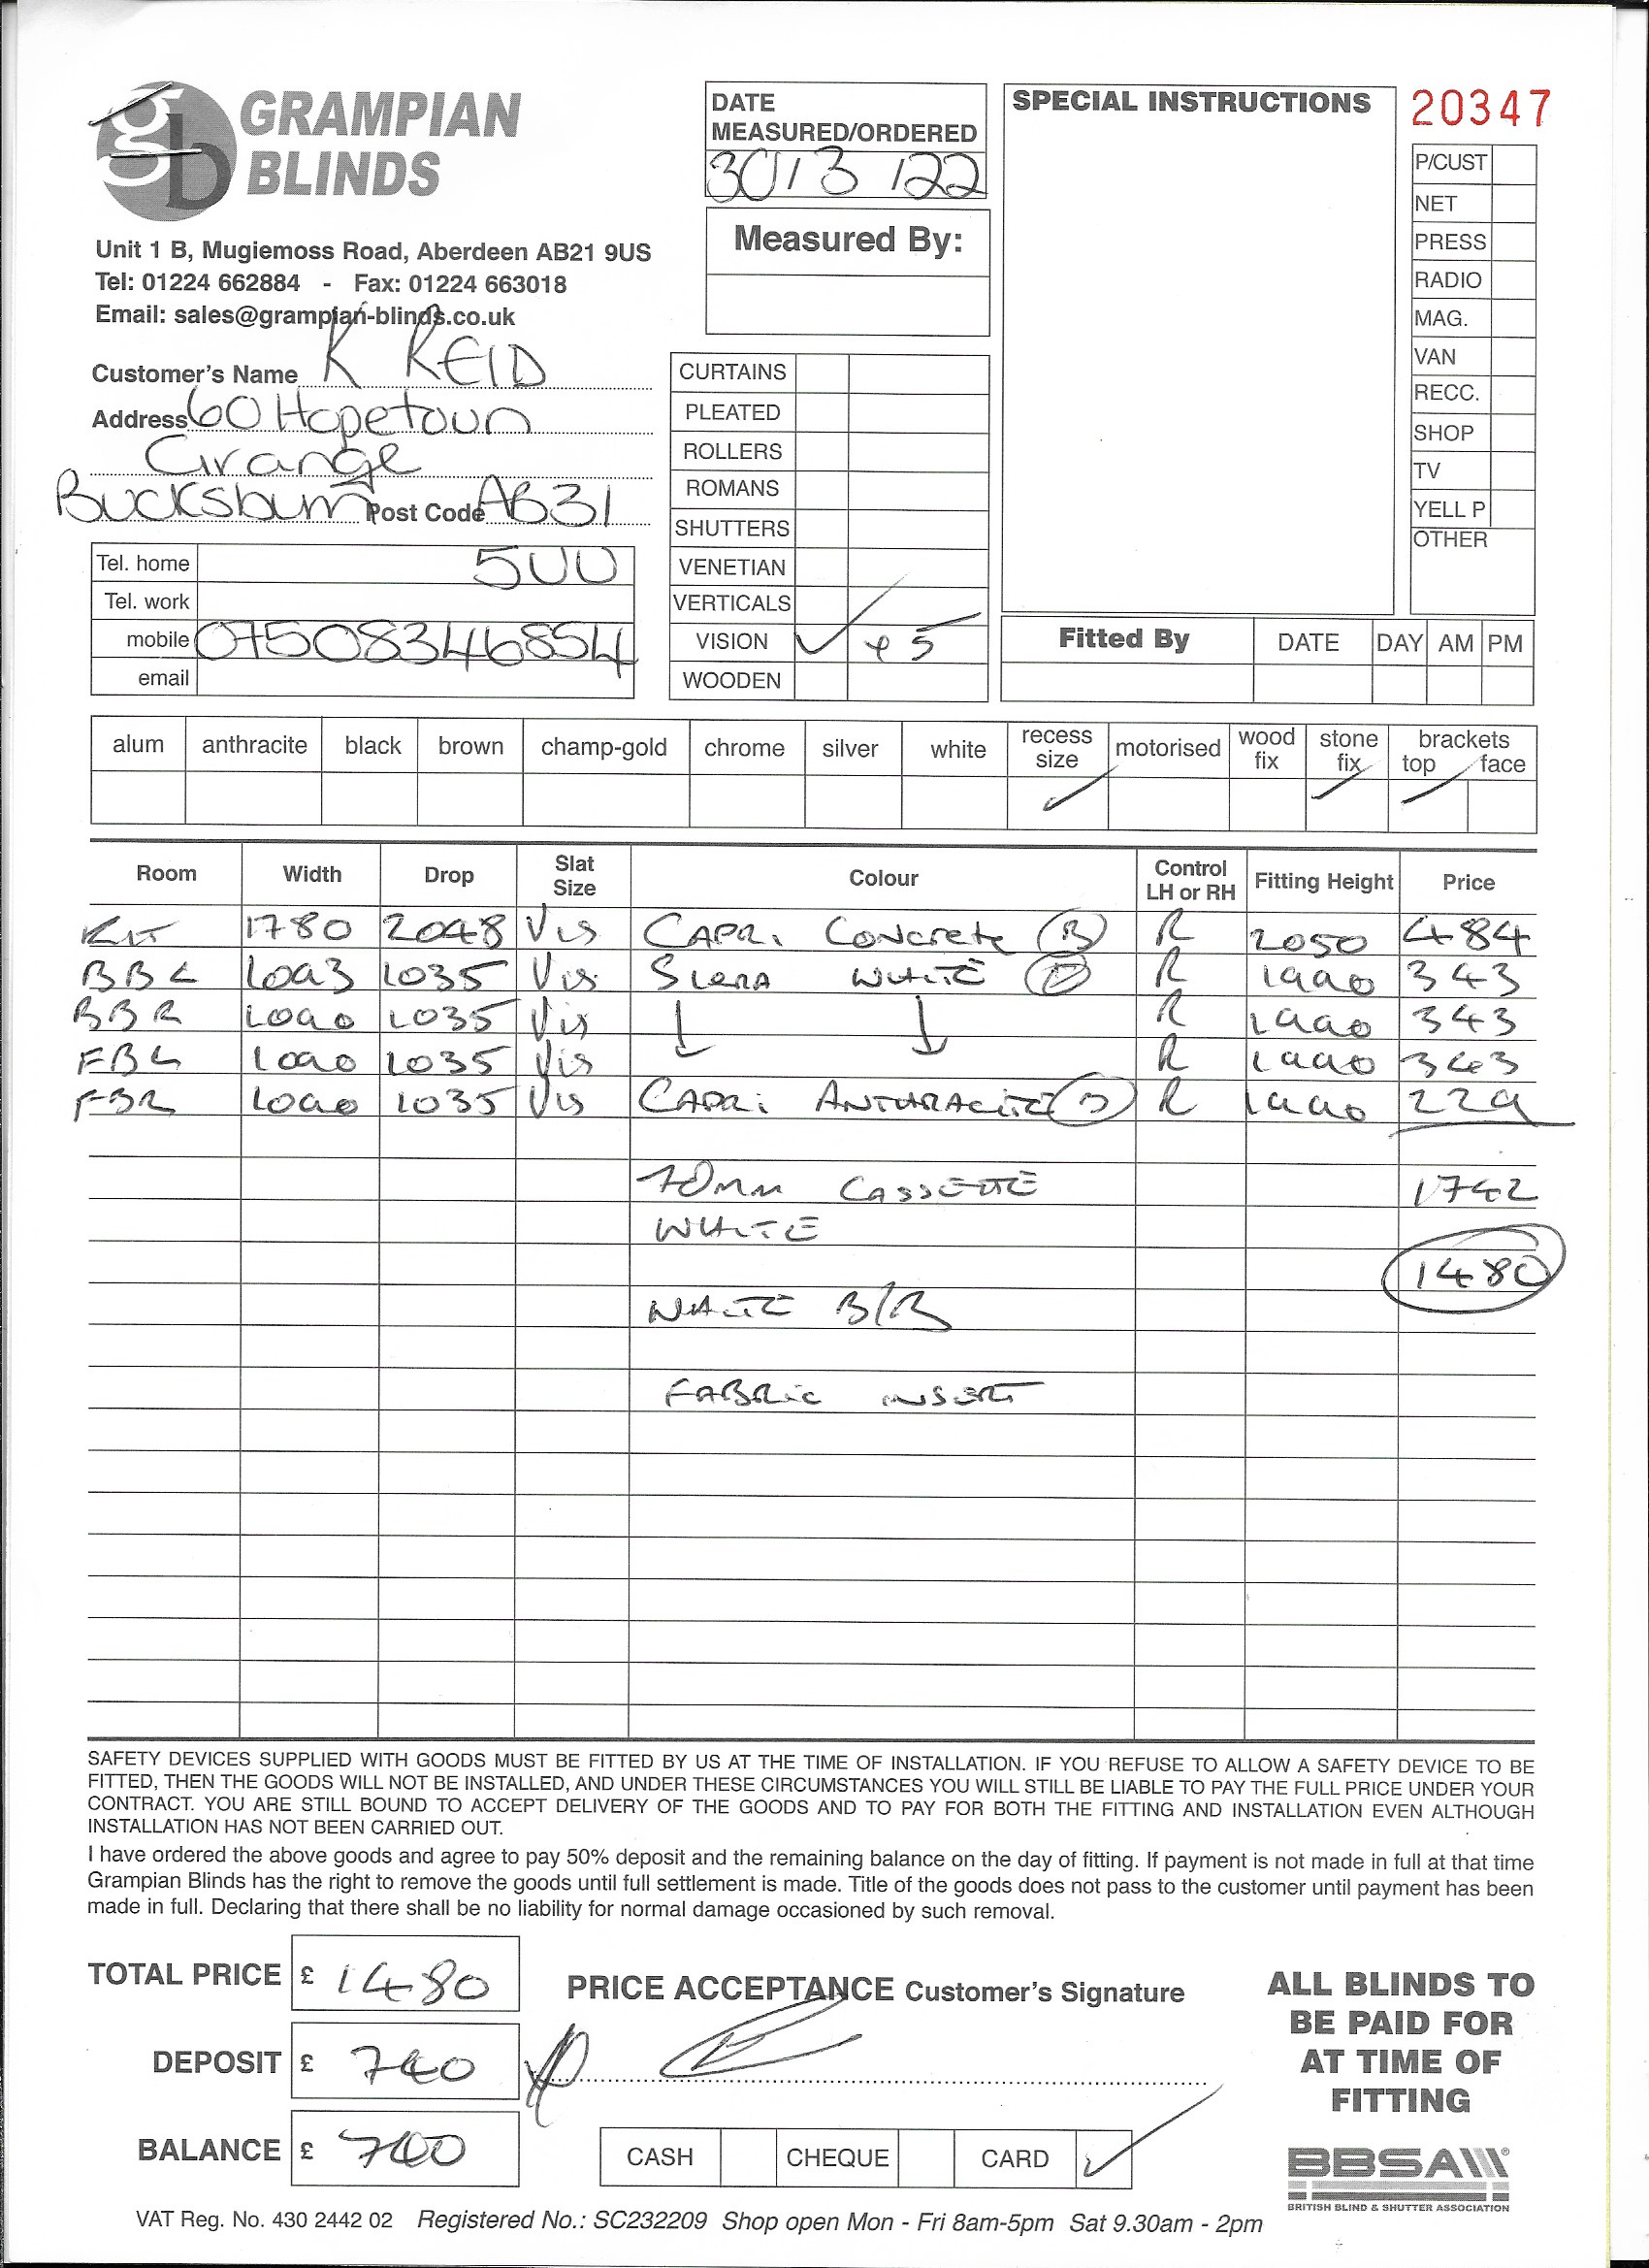 gb GRAMPIAN
BLINDS
Unit 1 B, Mugiemoss Road, Aberdeen AB21 9US
Tel: 01224 662884 - Fax: 01224 663018
Email: sales@grampian-blinds.co.uk
Customer's Name K REID
Address 60 Hopetoun
Grange
Bucksburn Post Code AB31
Tel. home 5UU
Tel. work
mobile 07508346854
email
DATE
MEASURED/ORDERED
30/3/22
Measured By:
CURTAINS
PLEATED
ROLLERS
ROMANS
SHUTTERS
VENETIAN
VERTICALS
VISION ✓ 5
WOODEN
SPECIAL INSTRUCTIONS
20347
P/CUST
NET
PRESS
RADIO
MAG.
VAN
RECC.
SHOP
TV
YELL P
OTHER
Fitted By DATE DAY AM PM
alum anthracite black brown champ-gold chrome silver white recess size motorised wood fix stone fix brackets top face
✓ ✓ ✓
Room Width Drop Slat Size Colour Control LH or RH Fitting Height Price
KIT 1780 2048 Vis CAPRi Concrete (B) R 2050 484
BBL 1093 1035 Vis SIERA WHITE (D) R 1990 343
BBR 1090 1035 Vis ↓ ↓ R 1990 343
FBL 1090 1035 Vis R 1990 343
FBR 1090 1035 Vis CAPRi ANTHRACITE (B) R 1990 229
70mm CASSETTE 1742
WHITE
1480
WHITE B/R
FABRic INSERT
SAFETY DEVICES SUPPLIED WITH GOODS MUST BE FITTED BY US AT THE TIME OF INSTALLATION. IF YOU REFUSE TO ALLOW A SAFETY DEVICE TO BE
FITTED, THEN THE GOODS WILL NOT BE INSTALLED, AND UNDER THESE CIRCUMSTANCES YOU WILL STILL BE LIABLE TO PAY THE FULL PRICE UNDER YOUR
CONTRACT. YOU ARE STILL BOUND TO ACCEPT DELIVERY OF THE GOODS AND TO PAY FOR BOTH THE FITTING AND INSTALLATION EVEN ALTHOUGH
INSTALLATION HAS NOT BEEN CARRIED OUT.
I have ordered the above goods and agree to pay 50% deposit and the remaining balance on the day of fitting. If payment is not made in full at that time
Grampian Blinds has the right to remove the goods until full settlement is made. Title of the goods does not pass to the customer until payment has been
made in full. Declaring that there shall be no liability for normal damage occasioned by such removal.
TOTAL PRICE £ 1480
DEPOSIT £ 740
BALANCE £ 740
PRICE ACCEPTANCE Customer's Signature
CASH CHEQUE CARD ✓
ALL BLINDS TO
BE PAID FOR
AT TIME OF
FITTING
BBSA
BRITISH BLIND & SHUTTER ASSOCIATION
VAT Reg. No. 430 2442 02 Registered No.: SC232209 Shop open Mon - Fri 8am-5pm Sat 9.30am - 2pm